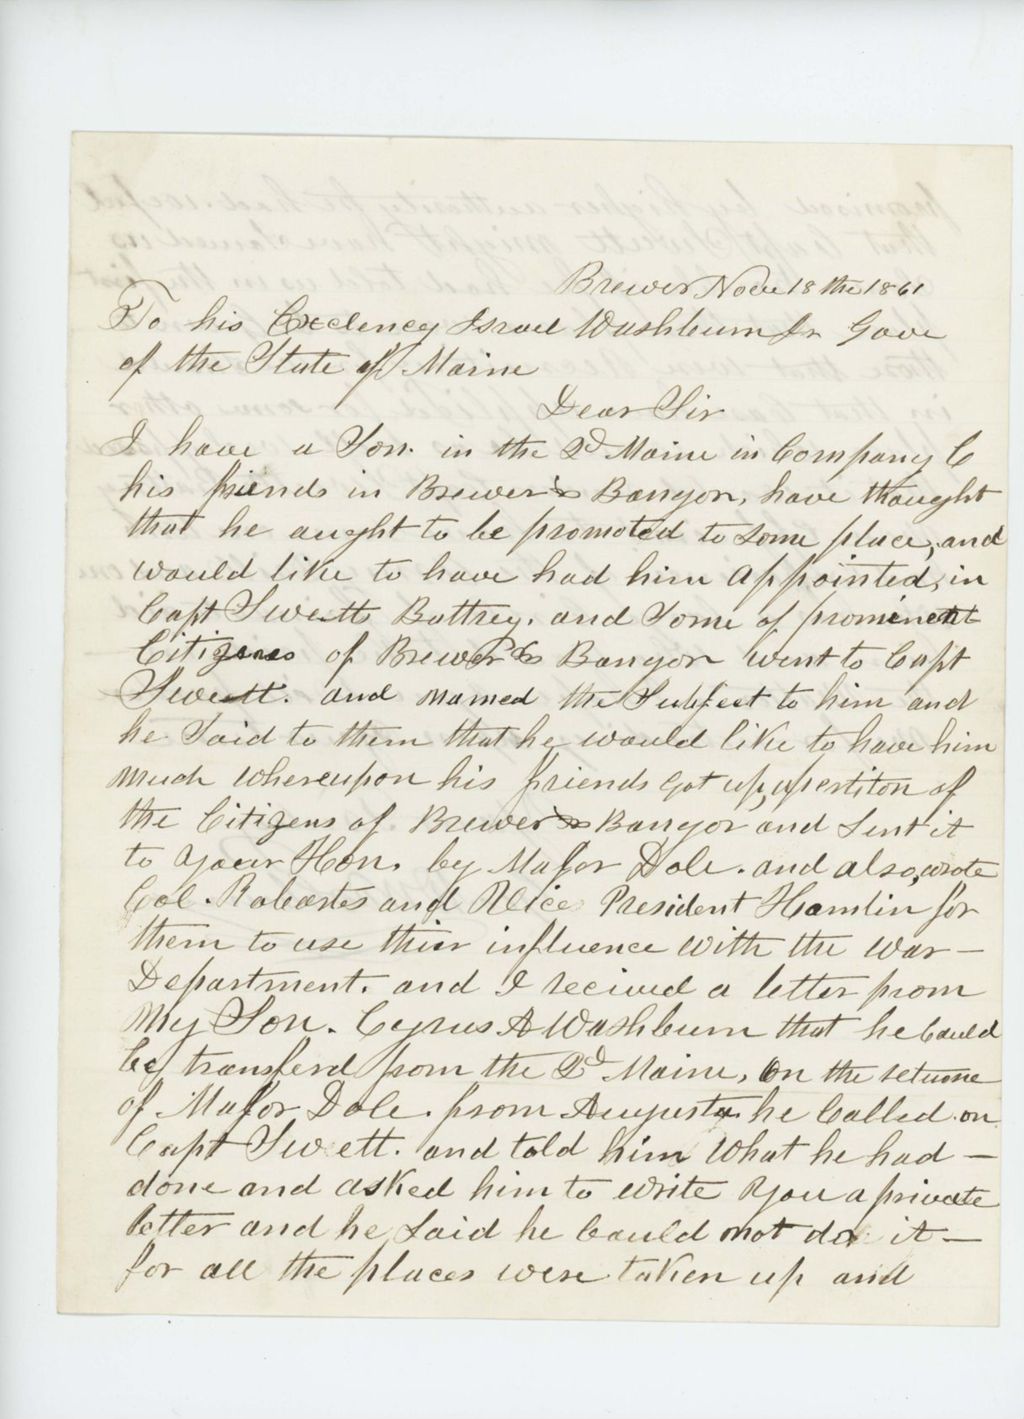 Brewer Nove 18 the 1861
To his Excelency Israel Washburn Jr Gove
of the State of Maine
Dear Sir
I have a Son. in the 2d Maine in Company C
his friends in Brewer & Bangor, have thought
that he aught to be promoted to some place, and
would like to have had him appointed, in
Capt Swett Battrey. and some of prominent
Citizens of Brewer & Bangor went to Capt
Swett. and named the Subject to him and
he Said to them that he would like to have him
much whereupon his friends got up, a petition of
the Citizens of Brewer & Bangor and Sent it
to your Hon. by Major Dole. and also, wrote
Col. Roberts and Vice President Hamlin for
them to use thier influence with the war –
Department. and I recived a letter from
My Son. Cyrus A Washburn that he Could
be transferd from the 2d Maine, On the returne
of Major Dole. from Augusta he Called on
Capt Swett. and told him What he had –
done and asked him to write you a private
letter and he Said he Could not do it –
for all the places were taken up and